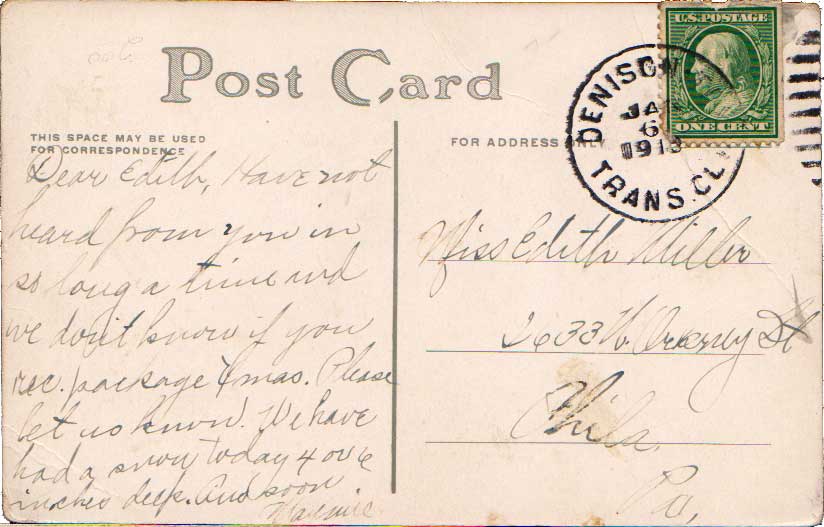 Post Card
THIS SPACE MAY BE USED
FOR CORRESPONDENCE
Dear Edith, Have not
heard from you in
so long a time and
we don't know if you
rec. package Xmas. Please
let us know. We have
had a snow today 4 or 6
inches deep. And soon
FOR ADDRESS ONLY
DENISON
JAN
6
1913
TRANS. CL
U.S. POSTAGE
ONE CENT
Miss Edith Miller
2633 N. St
Phila.
Pa,